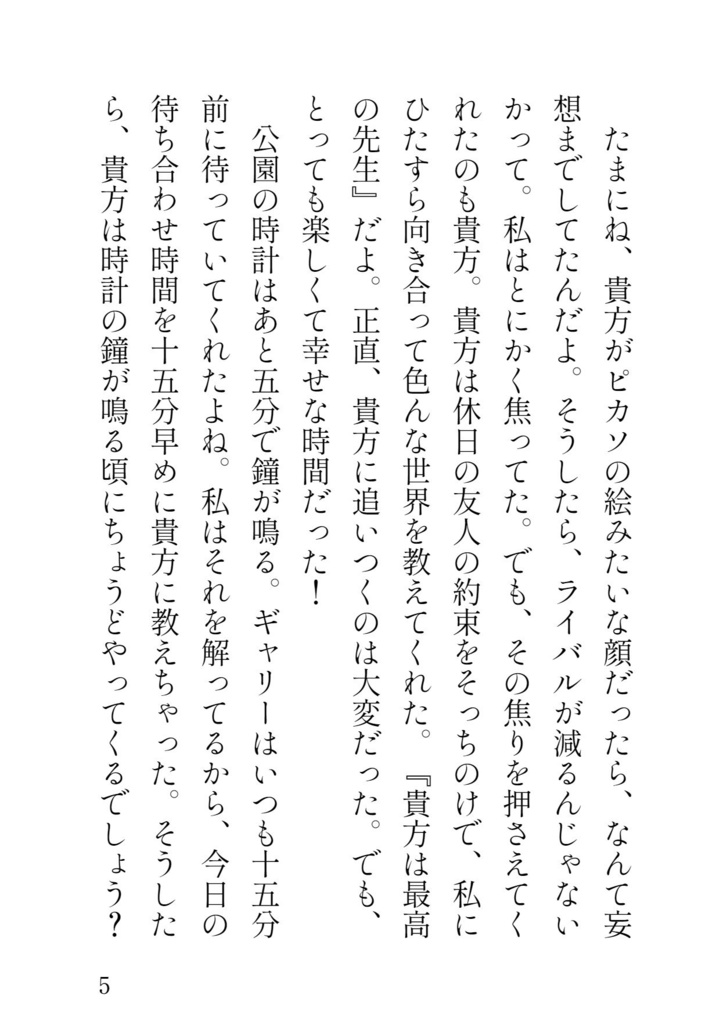 たまにね、貴方がピカソの絵みたいな顔だったら、なんて妄
想までしてたんだよ。そうしたら、ライバルが減るんじゃない
かって。私はとにかく焦ってた。でも、その焦りを押さえてく
れたのも貴方。貴方は休日の友人の約束をそっちのけで、私に
ひたすら向き合って色んな世界を教えてくれた。『貴方は最高
の先生』だよ。正直、貴方に追いつくのは大変だった。でも、
とっても楽しくて幸せな時間だった！
公園の時計はあと五分で鐘が鳴る。ギャリーはいつも十五分
前に待っていてくれたよね。私はそれを解ってるから、今日の
待ち合わせ時間を十五分早めに貴方に教えちゃった。そうした
ら、貴方は時計の鐘が鳴る頃にちょうどやってくるでしょう？
5